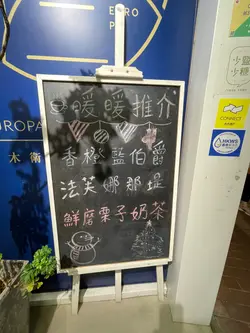 EURO
P
ROPA
木衛
暖暖推介
香橙藍伯爵
法芙娜那堤
鮮磨栗子奶茶
少鹽
少糖
CONNECT